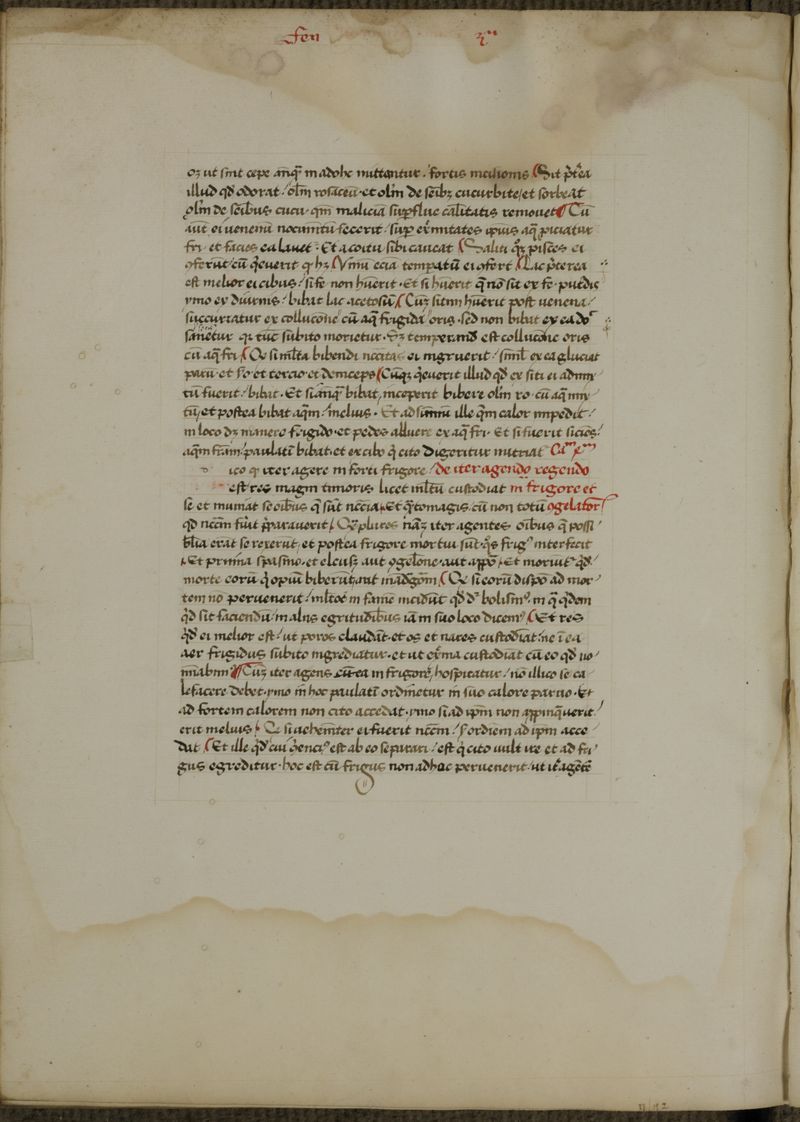 Fen 3ᵃ
oꝫ ut sint cepe anq̄ȝ in adohc mittantur / fortis incisionis Sit p̄t'ea
illud qd̄ odorat / olm̄ rosaceū · et olm̄ de seibꝫ cucurbite / et sorbeat
olm̄ de seibus cucu · qm̄ maliciā sup̄flue cal̄itatis remouet Cū
aut ei uenenū nocumētū fecerit / sup̄ ex̄mitates ipius aq̄ piciatur
fri · et facies ea lauet · Et a coitu sibi caueat Saliti q̄ꝫ pisces ei
ꝯferūt cū q̄euerit q̄ hꝫ Vinū eciā tempatū ei ꝯfert Lac p̄terea
est melior ei cibus / si fe non huerit · Et si huerit q̄ nō sit ex fe putdis
ymo ex diurnis / bibat lac acetosū Cūꝫ sitim huerit post uenena /
succurratur ex collucōne cū aq̄ frigida oris · sed non bibat ex ea do
sanetur q̄ tūc subito morietur · Et temperand est collucōne oris
cū aq̄ fri Qe si ml̄ta bibendi nccitas ei ingruerit / siml̄ ex ea gluciat
parū · et so et tercio et deinceps Cūqꝫ q̄euerit illud qd̄ ex siti ei adiuny
tū fuerit / bibat · Et si anq̄ȝ bibat, inceperit bibere olm̄ ro · cū aq̄ miy
tū / et postea bibat aqm̄ / melius · Et ad summū ille q̄m calor impedit /
in loco dꝫ manere frigido · et pedes alluere ex aq̄ fri · Et si fuerit siciēs /
aqm̄ fram̄ paulatī bibat · et ex cibo q̄ cito digeritur nutriat Cam
ico q̄ iter agere in forti frigore / de iter agendo regendo
est res magni timoris licet ml̄tū custodiat in frigore et
se et muniat se cibus q̄ sūt nccīa · Et q̄tomagis cū non totū ꝯgelator
qd̄ nccm̄ fuit p̄parauerit Qe plures naꝫ iter agentes oibus q̄ possi
bilia erāt se rexerūt, et postea frigore mortui sūt · q̄s frig' interfecit
Et prunia spasmo · et eleusi aut ꝯgelōne · aut appo · Et moriūt' q̄d
morte eorū q̄ opiū biberūt, aut mādgom Qe si eorū dispo ad mor
tem no peruenerit / ml̄tociē in famē incidūt qd̄ dr̄ bolism' · in q̄ q̄dem
q̄d sit faciendū / in aliis egritudibus iā in suo loco dicem' Et res
q̄d ei melior est / ut poros claudat · et os et nares custodiat / ne ī ea
aer frigidus subito ingrediatur · et ut ex̄ma custodiat cū eo qd̄ no
mīabim' Cūꝫ iter agens cū ea in frigore / hospitatur / nō illico se ca
lefacere debet · ymo in hoc paulatī ordinetur in suo calore paruo · Et
ad fortem calorem non cito accedat · ymo si ad ipm̄ non appinq̄uerit /
erit melius Qe si uehemēter ei fuerit nccm̄ / sordiem ad ipm̄ acce
dat Et ille q̄d cui ꝯuenci' est ab eo separari / est q̄ cito uult ire et ad fri
gus egreditur · hoc est cū frigus non adhac peruenerit / ut it'agētē